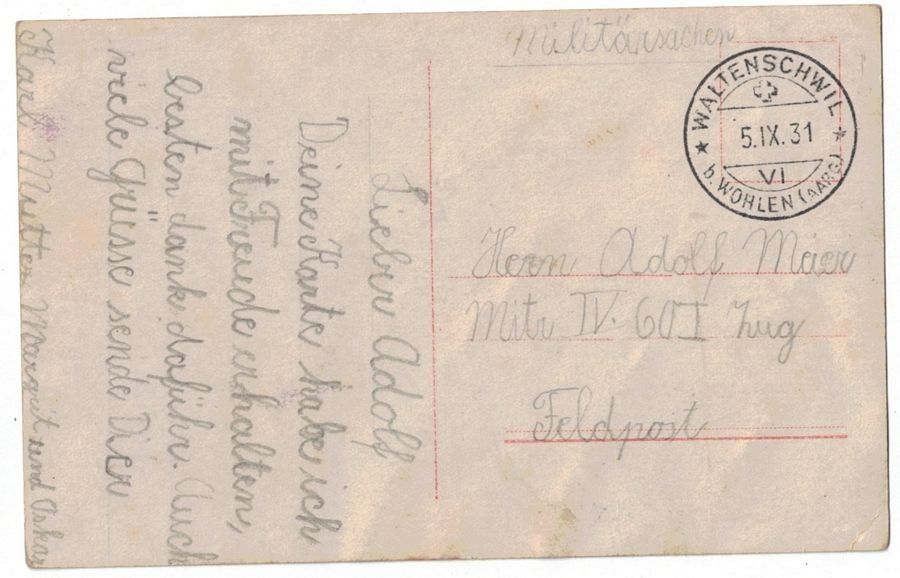 Militärsachen
WALTENSCHWIL
5.IX.31
VI
b. WOHLEN (AARG)
Hern Adolf Meier
Mitr IV. 60 I Zug
Feldpost
Lieber Adolf
Deine Karte habe ich
mit Freude erhalten,
besten dank daführ. Auch
viele Grüsse sende Dier
Karl Mutter Margrit und Oskar